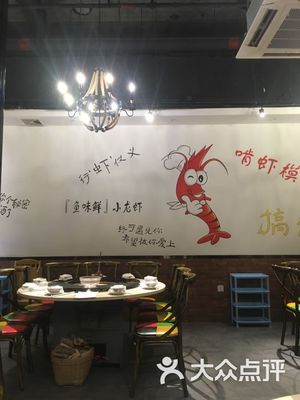 行"虾"仗义
『鱼味鲜』小龙虾
终于遇见你
希望被你爱上
啃虾模
搞
大众点评